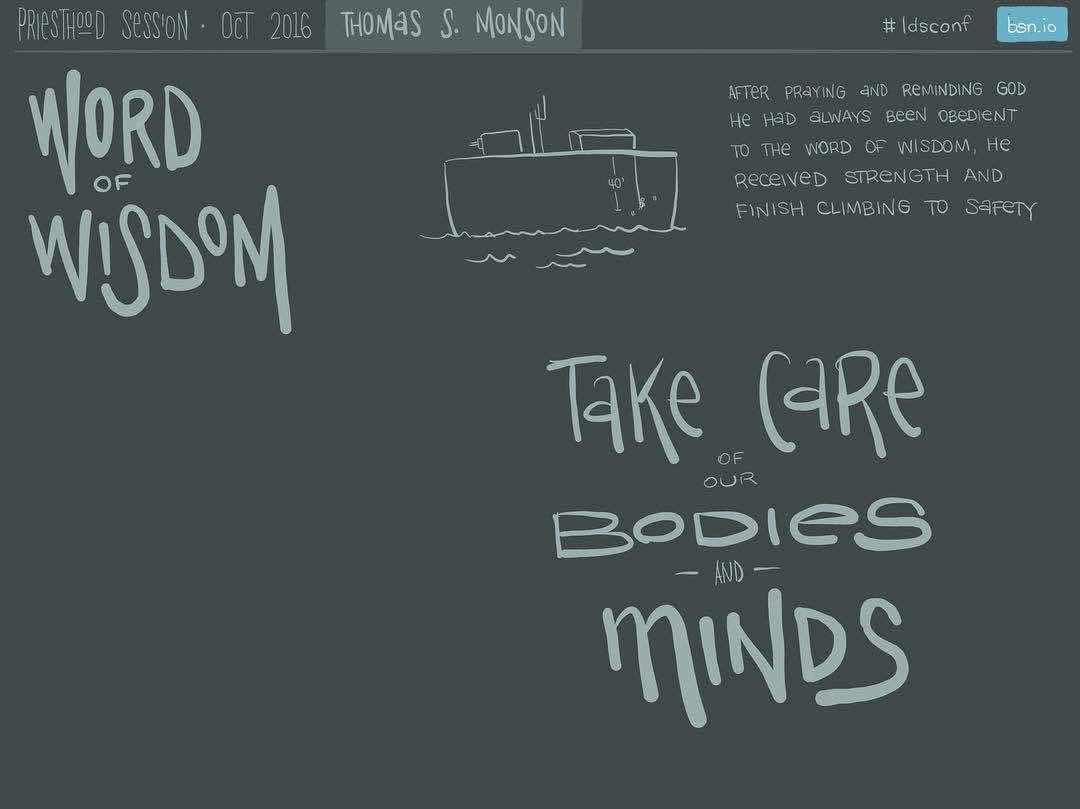 PRIESTHOOD SESSION · OCT 2016
THOMAS S. MONSON
#ldsconf
bsn.io
WORD
OF
WISDOM
40'
AFTER PRAYING AND REMINDING GOD
HE HAD ALWAYS BEEN OBEDIENT
TO THE WORD OF WISDOM, HE
RECEIVED STRENGTH AND
FINISH CLIMBING TO SAFETY
TAKE CARE
OF
OUR
BODIES
— AND —
MINDS